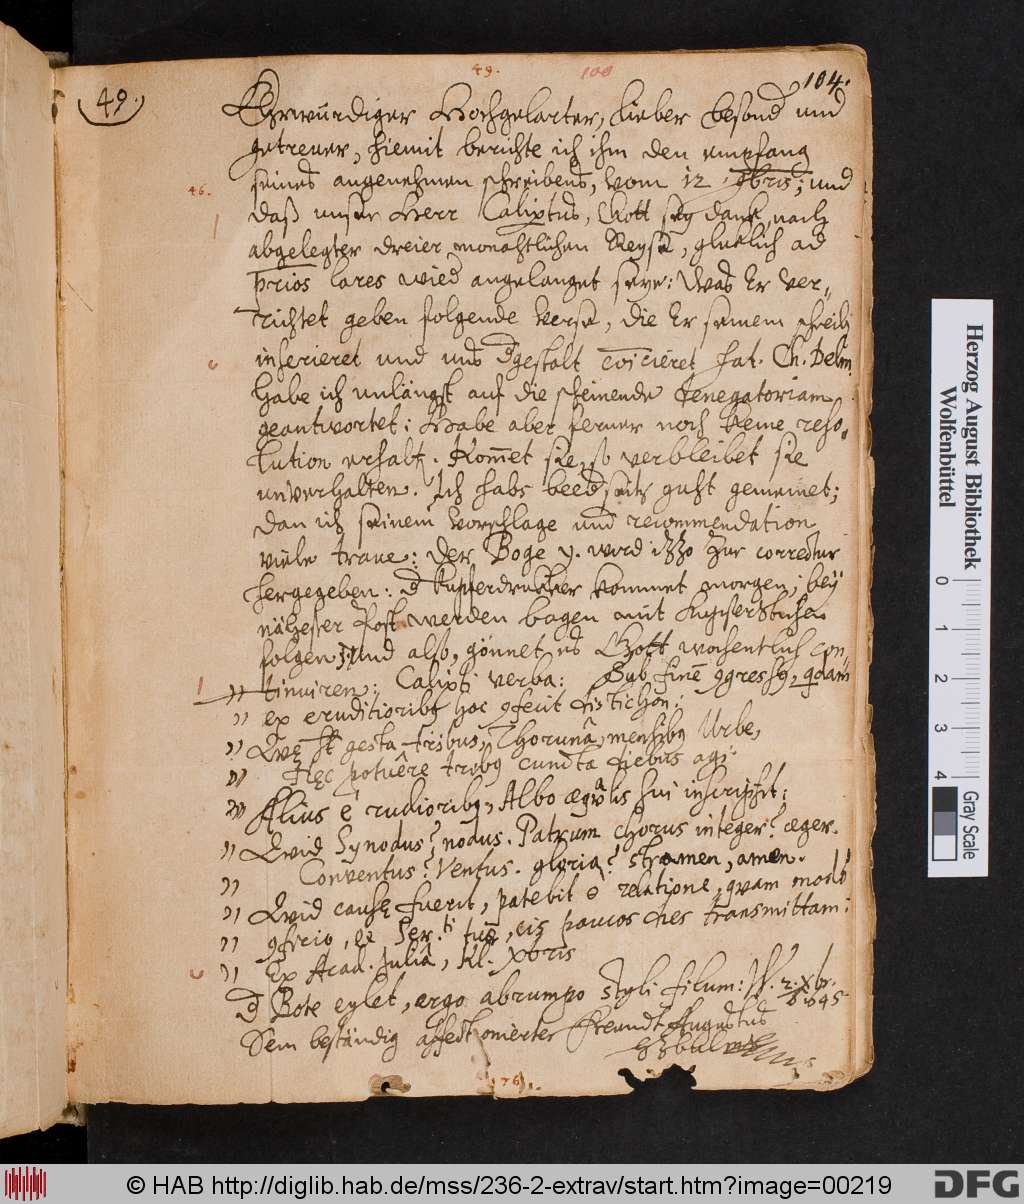 49.
100
104.
49.
Ehrwürdiger Hochgelarter, lieber besond und
getreuer, hiemit berichte ich ihm den empfang
seines angenehmen schreibens, vom 12 9bris; und
46.
daß unser Herr Calixtus, Gott sey dank, nach
abgelegter dreier monahtlichen Reyse, gluklich ad
prios lares wied angelanget seye: Was Er ver-
richtet geben folgende verse, die Er seinem schreib
inserieret und uns dgestalt cōicieret hat. Ch. Delm
habe ich unlängst auf die scheinende denegatoriam
geantwortet: Habe aber ferner noch keine reso-
lution erhalt. Kom̄et sie, so verbleibet sie
unverhalten. Ich habs beedseits guht gemeinet;
dan ich seinem vorschlage und recommendation
viele traue: Der Boge y. wird izzo zur correctur
hergegeben: d Kupferdrukker kommet morgen, bey
nähester Post werden bogen mit Kupferstichen
folgen, und also, gönnet es Gott wochentlich con-
tinuiren: Calixti verba: Sub finē 9gressq, qdam
" ex eruditiorib9 hoc 9fecit distichon:
" Qvę st gesta tribus, Thorunâ, mensib9 Urbe,
" Hęc potuêre trib9 cuncta diebus agi
" Alius è rudiorib9, Albo aeqvalis sui inscripsit:
" Qvid Synodus? nodus. Patrum chorus integer? aeger.
" Conventus? Ventus. gloria? stramen, amen.
" Qvid causę fuerit, patebit è relatione, qvam modò
" 9ficio, et Ser.ti tuę, cis paucos dies transmittam:
" Ex Acad. Juliâ, Kl. Xbris
d Bote eylet, ergo abrumpo styli filum: 2. Xbr.
1645
Sein beständig affectionierter Freund Augustus
76
Herzog August Bibliothek
Wolfenbüttel
0 1 2 3 4
Gray Scale
© HAB http://diglib.hab.de/mss/236-2-extrav/start.htm?image=00219
DFG